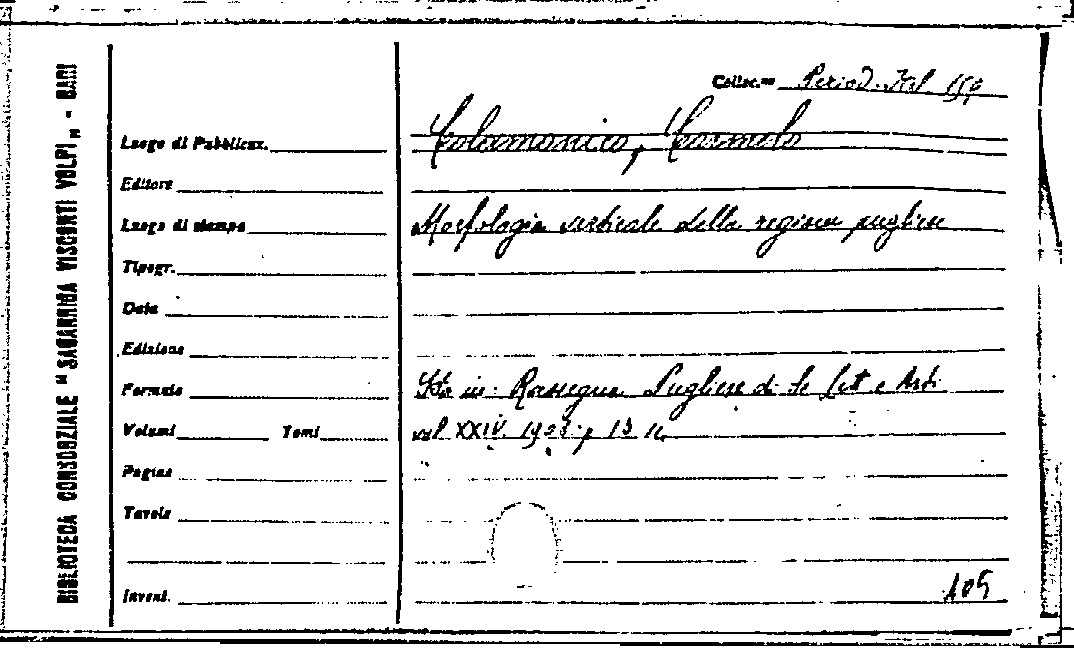 BIBLIOTECA CONSORZIALE "SAGARRIGA VISCONTI VOLPI" - BARI
Colloc.ne Period. 
Colamonico, Carmelo
Luogo di Pubblicaz.
Editore
Luogo di stampa
Morfologia verticale della regione pugliese
Tipogr.
Data
Edizione
Formato
Sta in: Rassegna Pugliese di Sc Let e Arti
Volumi Tomi
vol XXIV. p 13
Pagine
Tavole
Invent.
105